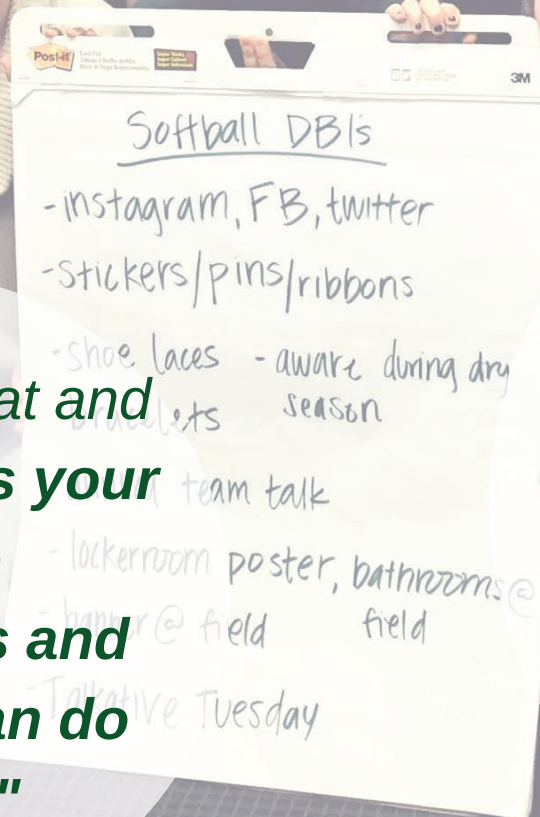 Post-it
3M
Softball DBI's
-instagram, FB, twitter
-stickers/pins/ribbons
-shoe laces - aware during dry
season
at and
s your
team talk
- lockerroom poster, bathrooms @
field
- banner @ field
s and
an do
- Talkative Tuesday
"